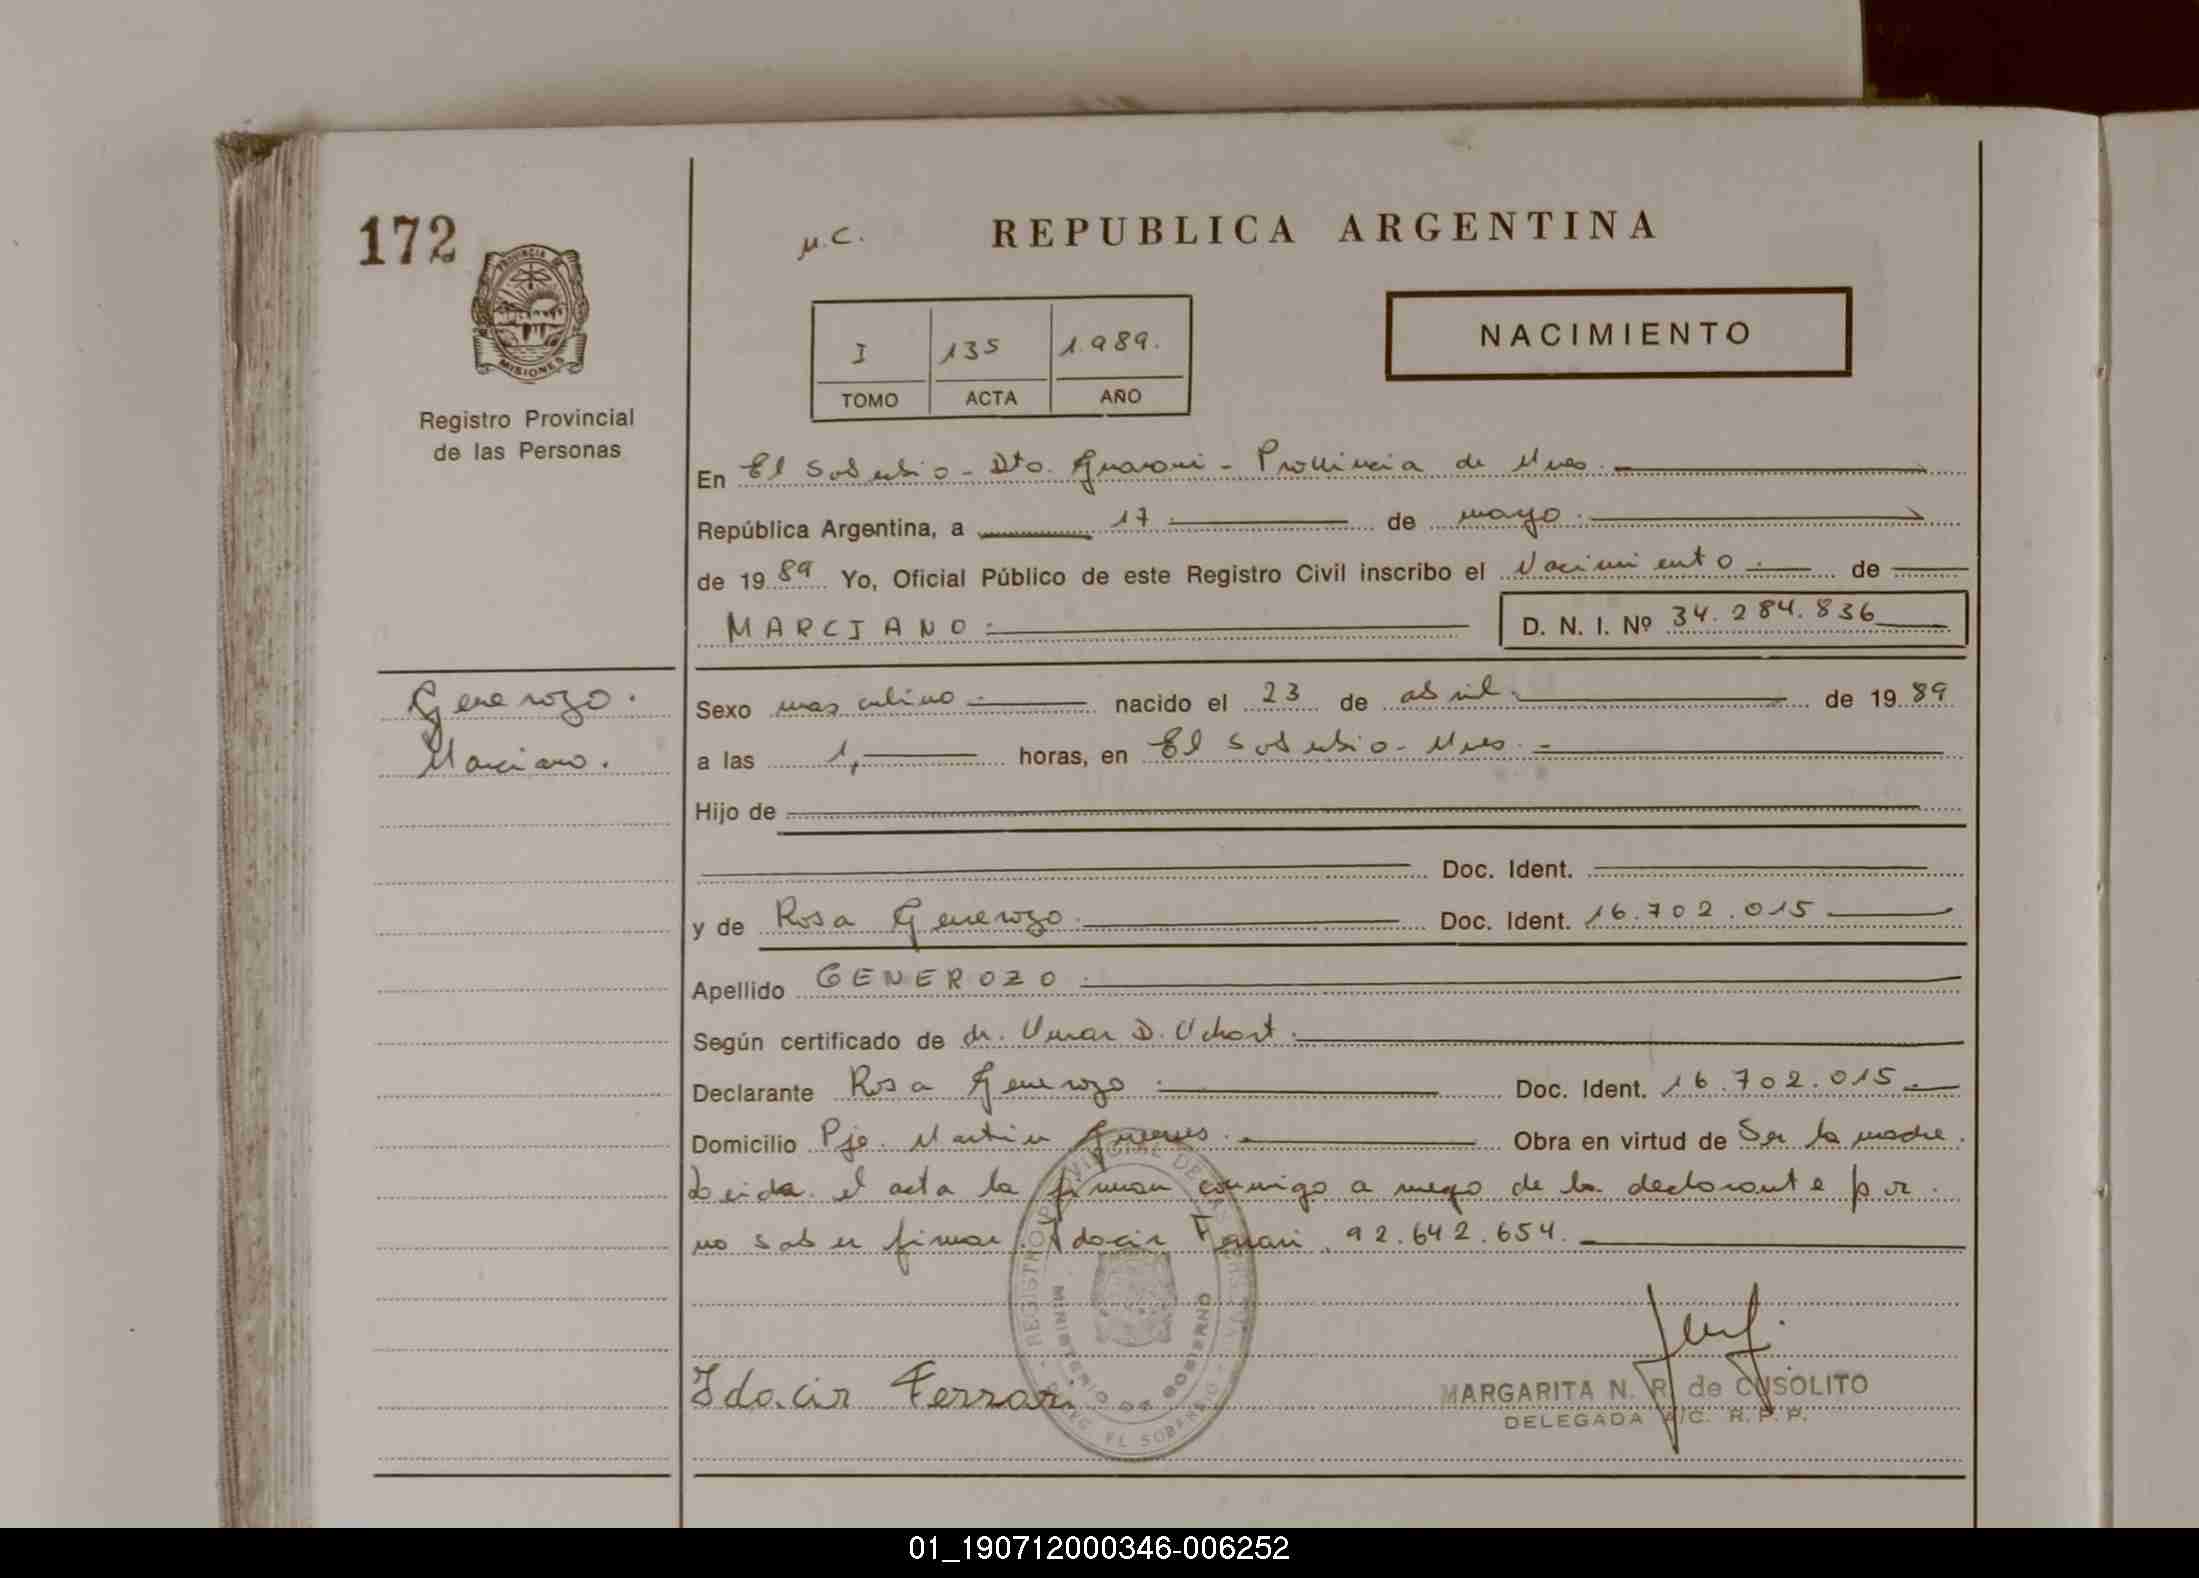 172
PROVINCIA DE
MISIONES
Registro Provincial
de las Personas
Generozo.
Marciano.
M.C.
REPUBLICA ARGENTINA
I 135 1.989.
TOMO ACTA AÑO
NACIMIENTO
En El Soberbio - Dto. Guarani - Provincia de Mnes.
República Argentina, a 17 de mayo.
de 19 89 Yo, Oficial Público de este Registro Civil inscribo el Nacimiento de
MARCIANO.
D. N. I. Nº 34.284.836
Sexo masculino. nacido el 23 de abril. de 19 89
a las 1, horas, en El Soberbio - Mnes. -
Hijo de
Doc. Ident.
y de Rosa Generozo. Doc. Ident. 16.702.015
Apellido GENEROZO.
Según certificado de dr. Omar D.
Declarante Rosa Generozo. Doc. Ident. 16.702.015.
Domicilio Pje. Martin Guemes. Obra en virtud de Ser la madre.
Leida el acta la firman conmigo a ruego de la declarante por
no saber firmar. Idacir Ferrari. 92.642.654.
REGISTRO PROVINCIAL DE LAS PERSONAS
MINISTERIO DE GOBIERNO
DELEG. EL SOBERBIO
Idacir Ferrari
MARGARITA N. R. de CUSOLITO
DELEGADA A/C. R. P. P.
01_190712000346-006252